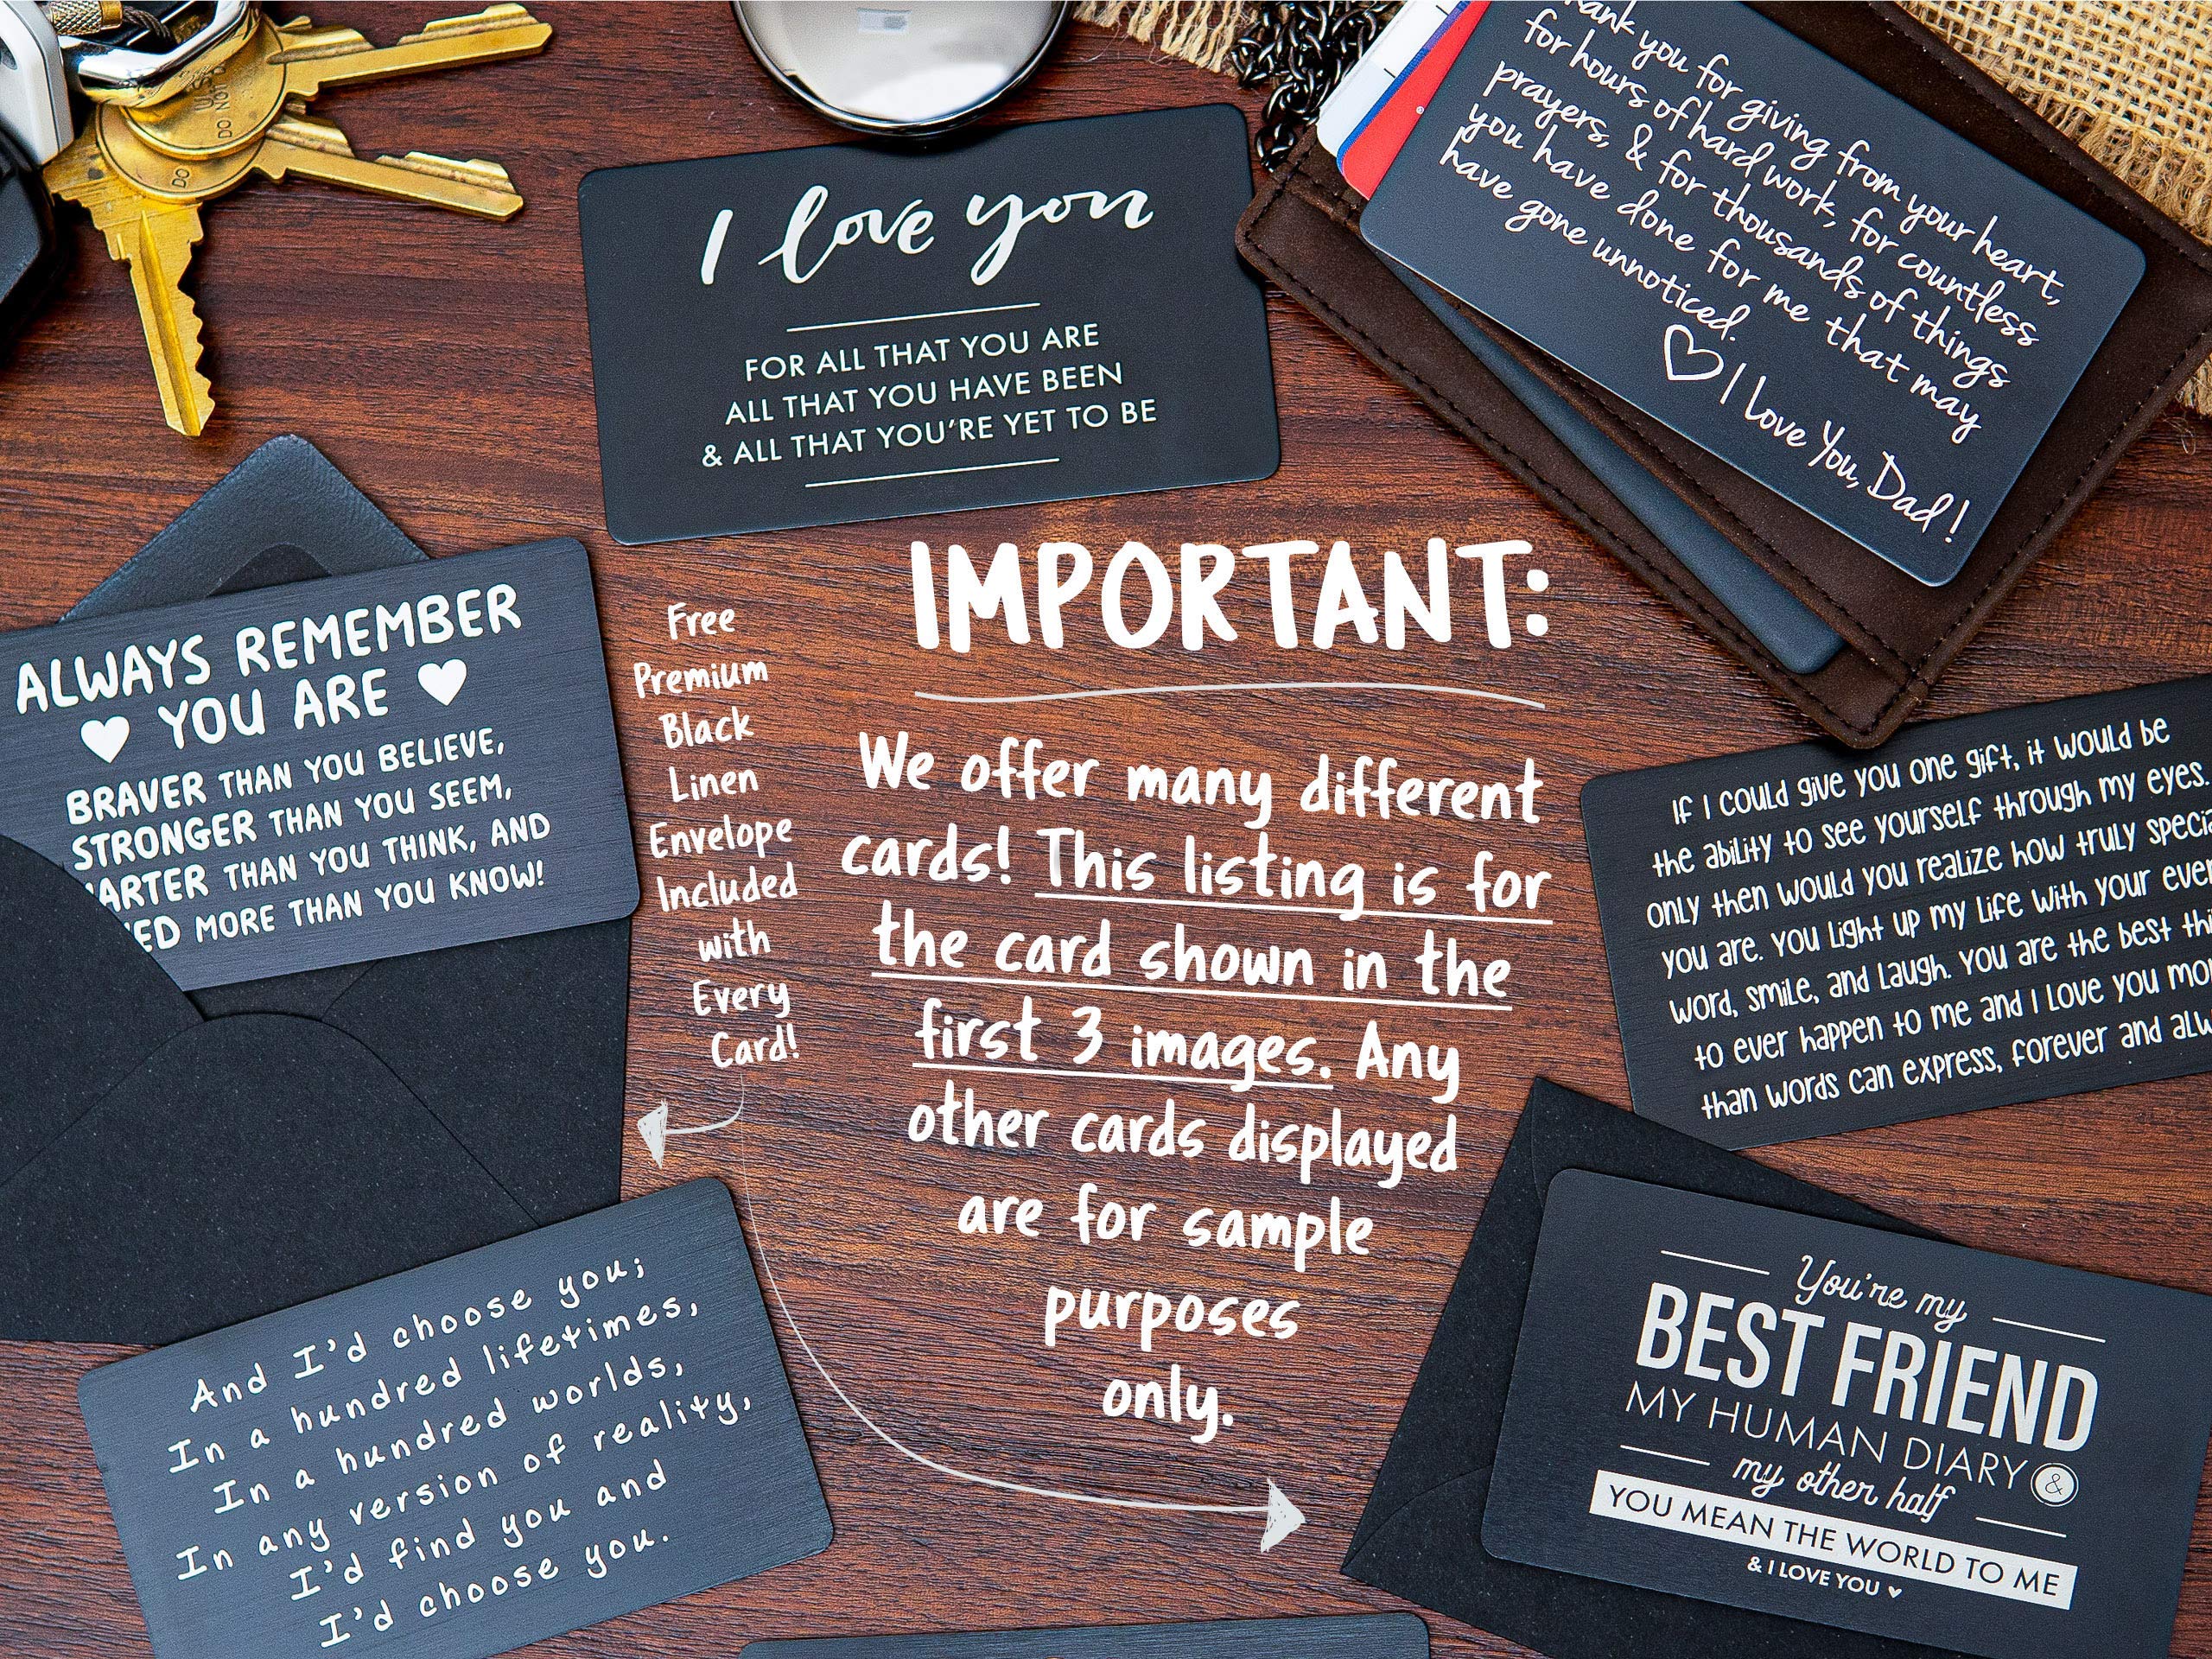 DO NOT
DO
I love you
FOR ALL THAT YOU ARE
ALL THAT YOU HAVE BEEN
& ALL THAT YOU'RE YET TO BE
you for giving from your heart,
for hours of hard work, for countless
prayers, & for thousands of things
you have done for me that may
have gone unnoticed.
♡ I Love You, Dad!
ALWAYS REMEMBER
♥ YOU ARE ♥
BRAVER THAN YOU BELIEVE,
STRONGER THAN YOU SEEM,
THAN YOU THINK, AND
MORE THAN YOU KNOW!
Free
Premium
Black
Linen
Envelope
Included
with
Every
Card!
IMPORTANT:
We offer many different
cards! This listing is for
the card shown in the
first 3 images. Any
other cards displayed
are for sample
purposes
only.
IF I COULD give YOU ONE gift, it WOULD be
the ability to see yourself through my eyes.
ONLY then WOULD YOU realize how truly
you are. YOU Light up my Life With your
word, smile, and Laugh. YOU are the best
to ever happen to me and I LOVE you
than words can express, forever and
And I'd choose you;
In a hundred lifetimes,
In a hundred worlds,
In any version of reality,
I'd find you and
I'd choose you.
You're my
BEST FRIEND
MY HUMAN DIARY &
my other half
YOU MEAN THE WORLD TO ME
& I LOVE YOU ♥